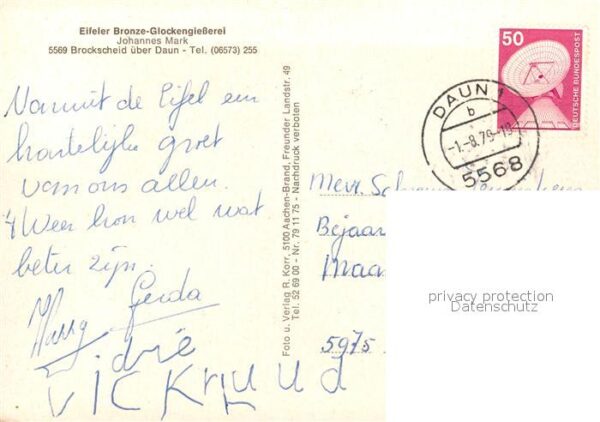 Eifeler Bronze-Glockengießerei
Johannes Mark
5569 Brockscheid über Daun - Tel. (06573) 255
Vanuit de Eifel een
hartelijke groet
van ons allen.
't Weer kon wel wat
beter zijn.
Harry Gerda
Foto u. Verlag R. Korr, 5100 Aachen-Brand, Freunder Landstr. 49
Tel. 52 69 00 - Nr. 79 11 75 - Nachdruck verboten
50
DEUTSCHE BUNDESPOST
DAUN 1
b
-1.-8.79-
5568
Mevr.
Bejaar
Maa
5975
privacy protection
Datenschutz